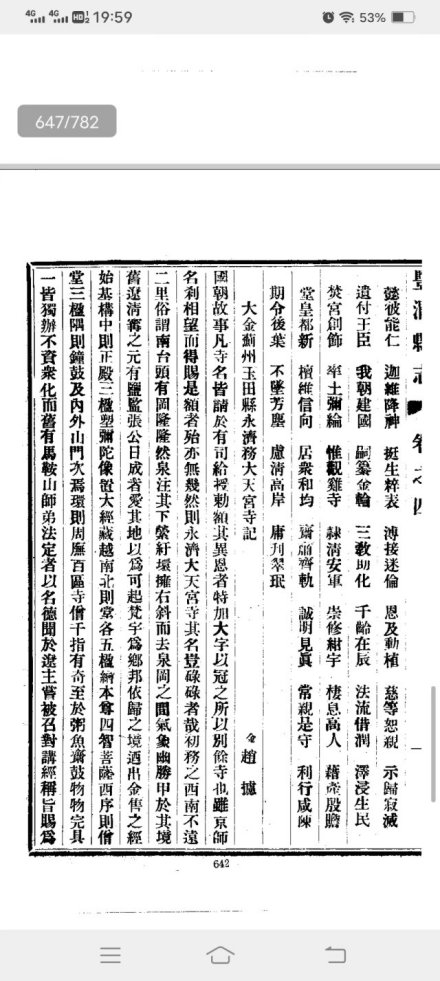 4G 4G HD 1 2 19:59 53%
647/782
豐潤縣志 卷之四
懿彼能仁 迦維降神 挺生粹表 溥接迷倫 恩及動植 慈等恕親 示歸寂滅
遺付王臣 我朝建國 嗣纂金輪 三敎助化 千齡在辰 法流借潤 澤浸生民
焚宮創飾 率土彌綸 惟觀雞寺 隸清安軍 崇修紺宇 棲息高人 藉產殷贍
堂皇都新 檀維信向 居衆和均 齋疏齊軌 誠明見眞 常親是守 利行咸陳
期令後葉 不墜芳塵 慮清高岸 庸刋翠珉
大金薊州玉田縣永濟務大天宮寺記
令 趙 摅
國朝故事凡寺名皆請於有司給授勅額其異恩者特加大字以冠之所以別餘寺也雖京師
名刹相望而得賜是額者殆亦無幾然則永濟大天宮寺其名豈碌碌者哉初務之西南不遠
二里俗謂南台頭有岡隆隆然泉注其下縈紆環擁右斜而去泉岡之間氣象幽勝甲於其境
舊遼清寗之元有鹽監張公日成者愛其地以爲可起梵宇爲鄉邦依歸之境迺出金售之經
始基構中則正殿三楹塑彌陀像置大經藏越南北則堂各五楹繪本尊四智菩薩西序則僧
堂三楹隅則鐘鼓及內外山門次焉環則周廡百區寺僧千指有奇至於粥魚齋鼓物物完具
一皆獨辦不資衆化而舊有馬鞍山師弟法定者以名德聞於遼主嘗被召對講經稱旨賜爲
一
642